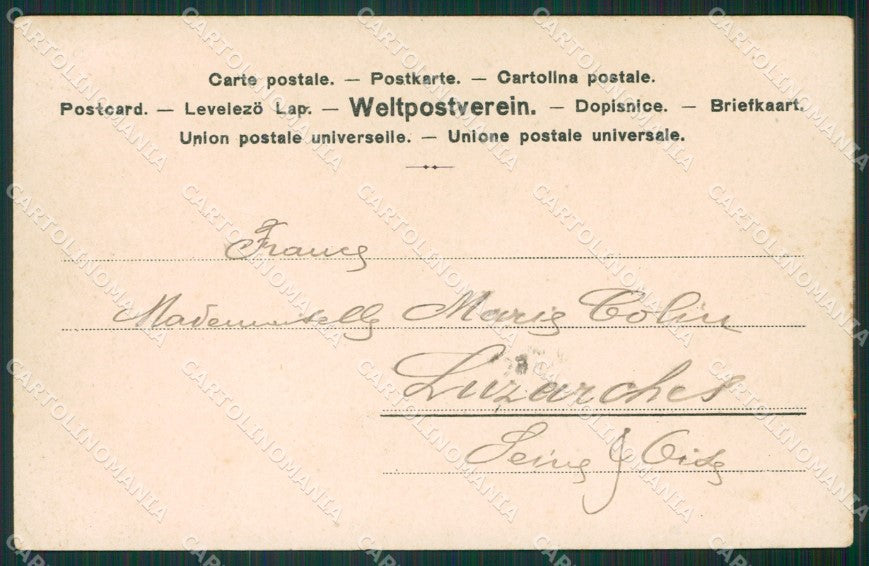 Carte postale. — Postkarte. — Cartolina postale.
Postcard. — Levelező Lap. — Weltpostverein. — Dopisnice. — Briefkaart.
Union postale universelle. — Unione postale universale.
France
Mademoiselle Marie Colin
Luzarches
Seine & Oise
CARTOLINOMANIA